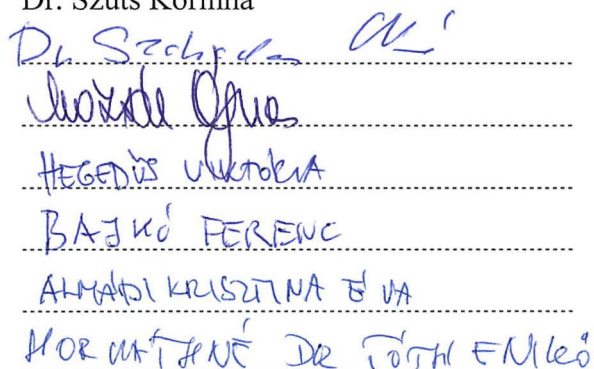 Dr. Szűts Korinna
Dr.
Ágnes
HEGEDŰS VIKTÓRIA
BAJKÓ FERENC
ALMÁDI KRISZTINA ÉVA
HORVÁTHNÉ DR TÓTH ENIKŐ